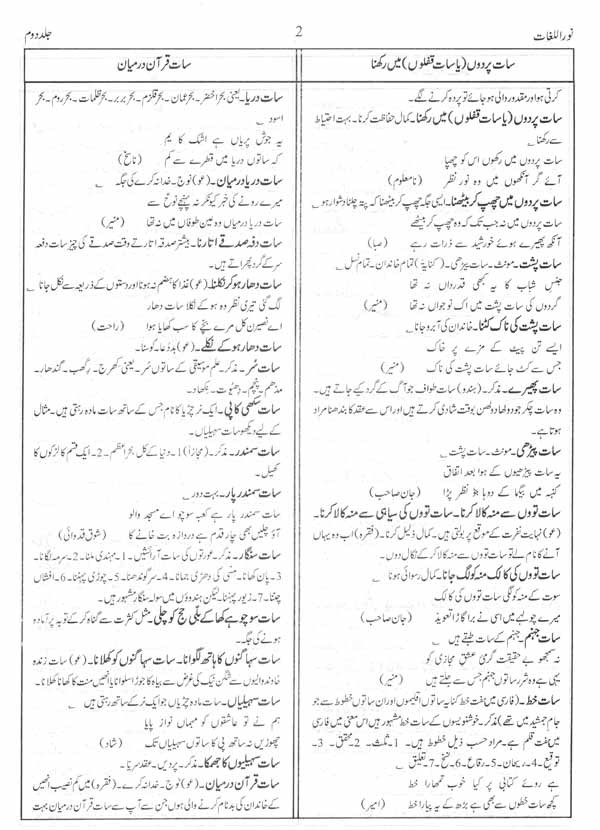 نور اللغات
2
جلد دوم
سات پردوں (یا سات قفلوں) میں رکھنا
سات قرآن درمیان
کرتی ہو اور مقدور والی ہو جائے تو پردہ کرنے لگے۔
سات پردوں (یا سات قفلوں) میں رکھنا۔ کمال حفاظت کرنا۔ بہت احتیاط
سے رکھنا
سات پردوں میں رکھوں اس کو چھپا
آئے گر آنکھوں میں وہ نور نظر (نامعلوم)
سات پردوں میں چھپ کر بیٹھنا۔ ایسی جگہ چھپ کر بیٹھنا کہ پتہ چلنا دشوار ہو
سات پردوں میں نہ جب تک کہ وہ چھپ کر بیٹھے
آنکھ پھیرے ہوئے خورشید سے ذرات رہے (صبا)
سات پشت۔ مونث۔ سات پیڑھی۔ (کنایۃً) تمام خاندان۔ تمام نسل
جنس شباب کا یہ بھی قدرداں نہ تھا
گردوں کی سات پشت میں اک نوجواں نہ تھا (منیر)
سات پشت کی ناک کٹنا۔ خاندان کی آبرو جانا
ایسے تن پیٹ کے مزے پر خاک
جس سے کٹ جائے سات پشت کی ناک (منیر)
سات پھیرے۔ مذکر۔ (ہندو) سات طواف جو آگ کے گرد کیے جاتے ہیں۔
وہ سات چکر جو دولھا دولھن بوقت شادی کرتے ہیں اور اس سے عقد کا بندھنا مراد
ہوتا ہے۔
سات پیڑھی۔ مونث۔ سات پشت
یہ سات پیڑھیوں کے ہوا بعد اتفاق
کنبہ میں بیگما کے دوہا جو نظر پڑا (جان صاحب)
سات توؤں سے منہ کالا کرنا۔ سات توؤں کی سیاہی سے منہ کالا کرنا۔
(عو) نہایت نفرت کے موقع پر بولتی ہیں۔ کمال ذلیل کرنا۔ (فقرہ) اب وہ یہاں
آنے کا نام لے تو سات توؤں سے منہ کالا کر کے نکال دوں۔
سات توؤں کی کالک منہ کو لگ جانا۔ کمال رسوائی ہونا
سوت کے منہ کو لگی سات توؤں کی کالک
میرے چولہے میں اسی نے برا گاڑا تعویذ (جان صاحب)
سات جہنم۔ جہنم کے سات طبقے ہیں
نہ سمجھو بے حقیقت گرمی عشق مجازی کو
یہی ہے وہ شرر ساتوں جہنم جس سے جلتے ہیں (منیر)
سات خط۔ (فارسی میں ہفت خط کنایہ سات اقلیموں اور ان ساتوں خطوط سے جو
جام جمشید میں تھے) مذکر۔ خوشنویسوں کے سات خط مشہور ہیں اس معنی میں فارسی
میں ہفت قلم ہے۔ مراد حسب ذیل خطوط ہیں۔ 1۔ ثلث۔ 2۔ محقق۔ 3۔
توقیع۔ 4۔ ریحان۔ 5۔ رقاع۔ 6۔ نسخ۔ 7۔ تعلیق
ہے روئے کتابی پر کیا خوب تمھارا خط
کچھ سات خطوں سے بھی ہے بڑھ کے یہ پیارا خط (امیر)
سات دریا۔ یعنی بحر اخضر۔ بحر عمان۔ بحر قلزم۔ بحر بربر۔ بحر ظلمات۔ بحر روم۔ بحر
اسود
یہ جوش پریاں ہے اشک کا یم
کہ ساتوں دریا میں قطرے سے کم (ناسخ)
سات دریا درمیان۔ (عو) نوج۔ خدا نہ کرے کی جگہ
میرے رونے کی خبر کیونکر نہ پہنچے نوح سے
سات دریا درمیاں وہ عین طوفاں میں نہ تھا (منیر)
سات دفعہ صدقے اتارنا۔ بیشتر صدقہ اتارتے وقت صدقے کی چیز سات دفعہ
سر کے گرد پھراتے ہیں۔
سات دھار ہو کر نکلنا۔ (عو) غذا کا ہضم نہ ہونا اور دستوں کے ذریعہ سے نکل جانا
لگ گئی تیری نظر وہ ہو کے نکلا سات دھار
اے نصیرن کل مرے بچے کا سب کھایا ہوا (راحت)
سات دھار ہو کے نکلے۔ (عو) بد دعا۔ کوسنا۔
سات سُر۔ مذکر۔ علم موسیقی کے ساتوں سُر۔ یعنی کھرج۔ رکھب۔ گندھار۔
مدھم۔ پنچم۔ دھیوت۔ نکھاد۔
سات سکھی کا پی۔ ایک نر چڑیا کا نام جس کے ساتھ سات مادہ رہتی ہیں۔ مثال
کے لیے دیکھو سات سہیلیاں۔
سات سمندر۔ مذکر۔ (مجازاً) 1۔ دنیا کے کل بحر اعظم۔ 2۔ ایک قسم کا لڑکوں کا
کھیل۔
سات سمندر پار۔ بہت دور
سات سمندر پار ہے کعبہ سوچو اے مسجد والو
آؤ چلیں بھی چار قدم ہے دروازہ بت خانے کا (شوق قدوائی)
سات سنگار۔ مذکر۔ عورتوں کی سات آرائشیں۔ 1۔ مہندی ملنا۔ 2۔ سرمہ لگانا۔
3۔ پان کھانا۔ مسی کی دھڑی جمانا۔ 4۔ سر گوندھنا۔ 5۔ چوڑی پہننا۔ 6۔ افشاں
چننا۔ 7۔ زیور پہننا۔ لیکن ہندوؤں میں سولہ سنگار مشہور ہیں۔
سات سو چوہے کھا کے بلی حج کو چلی۔ مثل کثرت سے گناہ کر کے توبہ پر آمادہ
ہونے کی جگہ۔
سات سہاگنوں کا ہاتھ لگوانا۔ سات سہاگنوں کو کھلانا۔ (عو) سات زندہ
خاوند والیوں سے شگن نیک کی غرض سے بیاہ کا جوڑا سلوانا یا انھیں منت کا کھانا کھلانا۔
سات سہیلیاں۔ سات مادہ چڑیاں جو ایک نر کے ساتھ رہتی ہیں
ہم نے تو عاشقوں کو مہماں نواز پایا
چھوڑیں نہ ساتھ پی کا ساتوں سہیلیاں تک (شاد)
سات سہیلیوں کا جھمکا۔ مذکر۔ پردیں۔ عقد ثریا۔
سات قرآن درمیان۔ (عو) نوج۔ خدا نہ کرے۔ (فقرہ) میں کم نصیب انھیں
کے خاندان کی بدنام کرنے والی ہوں جن سے آپ سے سات قرآن درمیان بہت